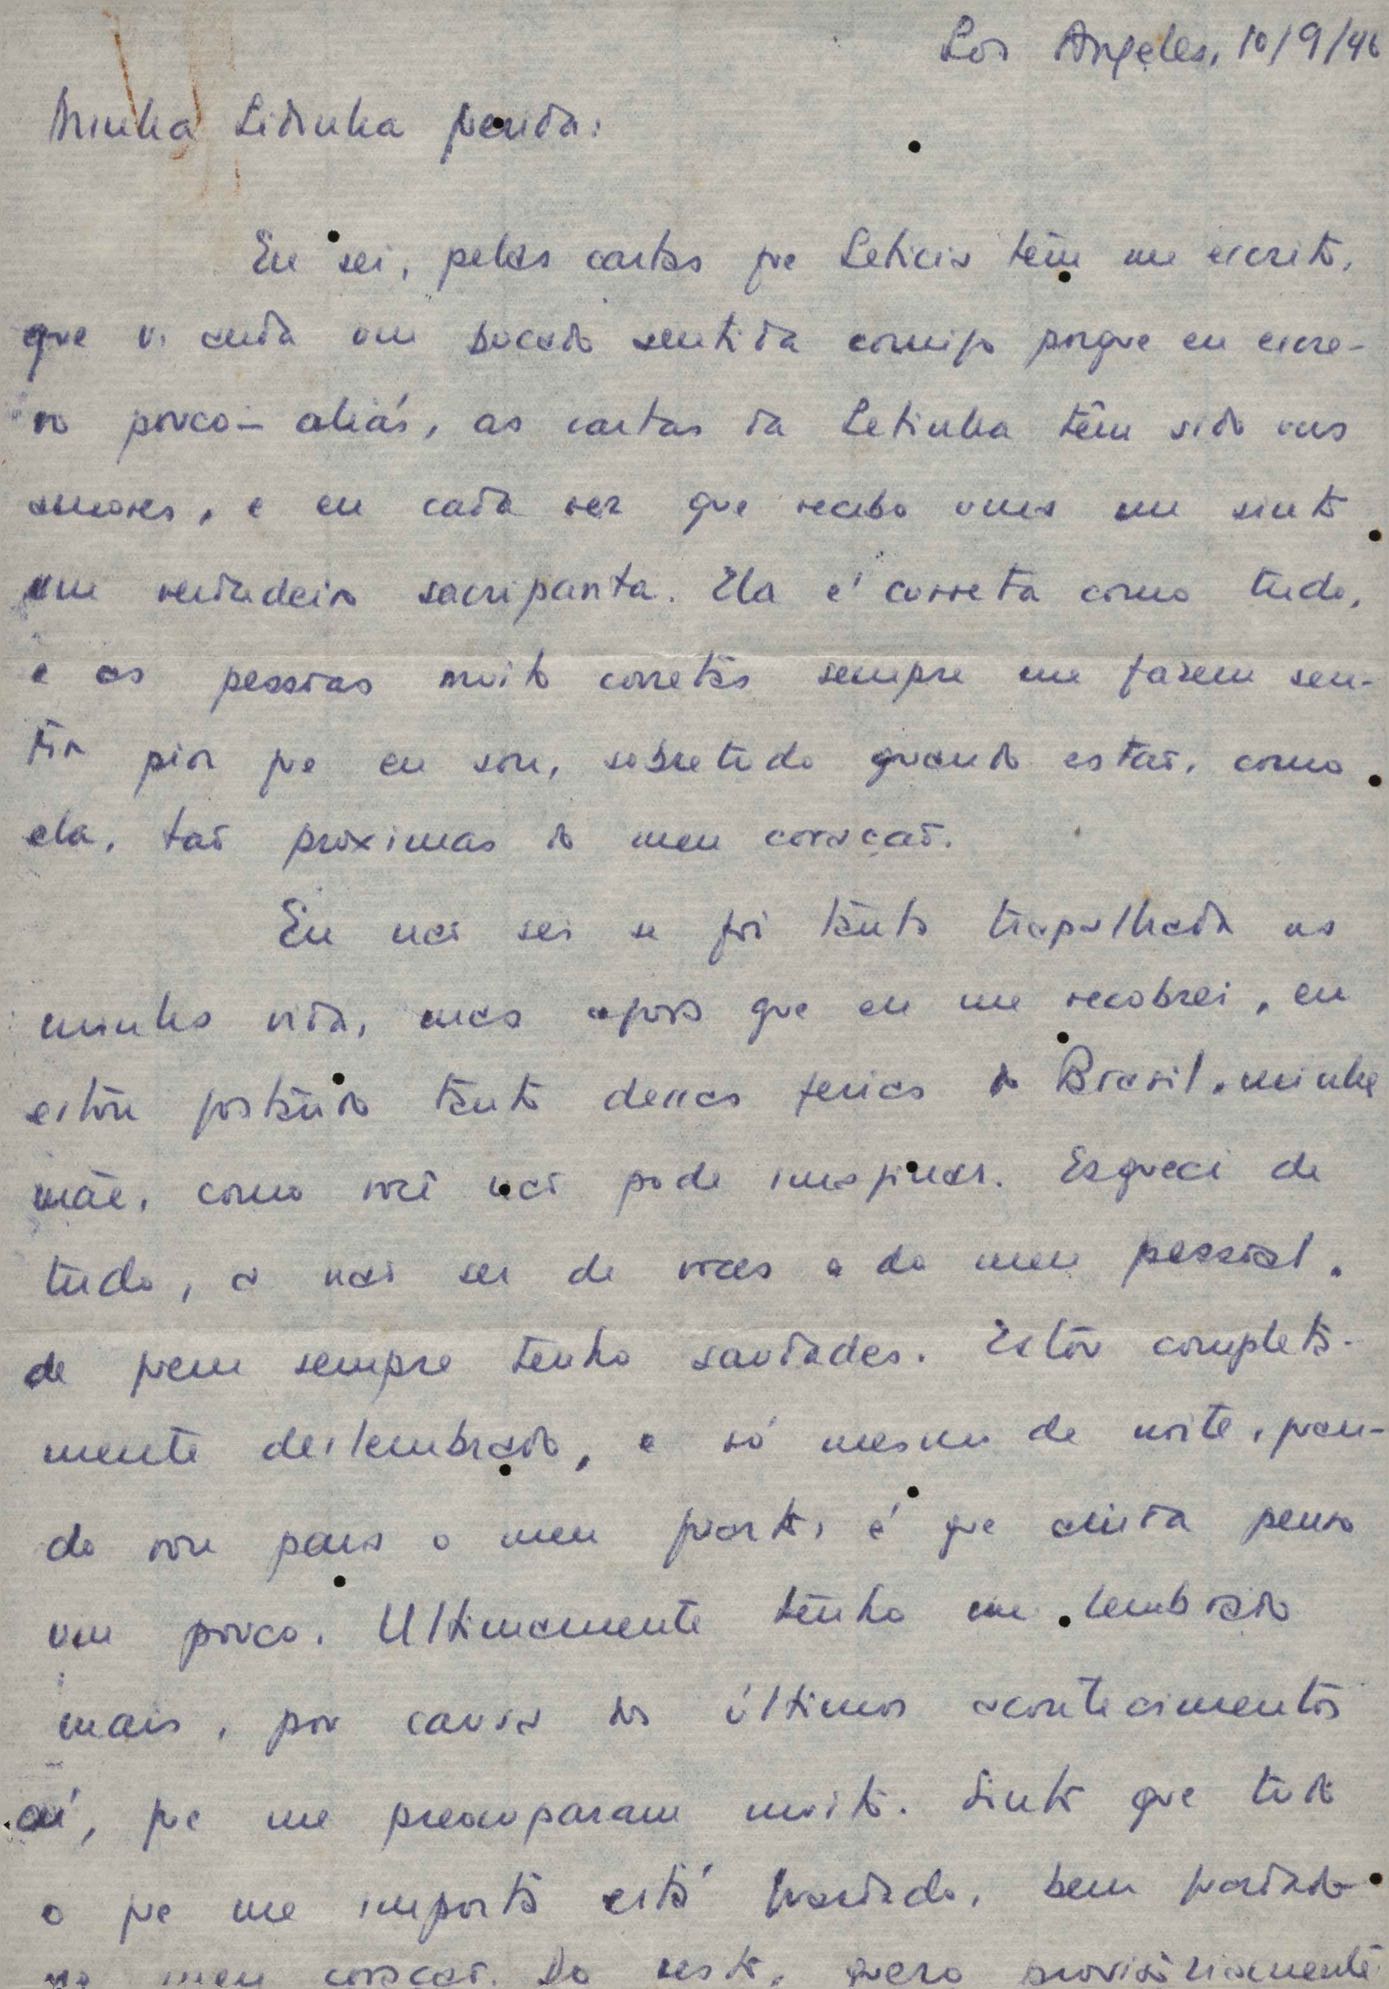 Los Angeles, 10/9/46
Minha Lidinha querida:
Eu sei, pelas cartas que Leticia têm me escrito,
que v. anda um bocado sentida comigo porque eu escre-
vo pouco — aliás, as cartas da Letinha têm sido uns
amores, e eu cada vez que recebo uma me sinto
um verdadeiro sacripanta. Ela é correta como tudo,
e as pessoas muito corretas sempre me fazem sen-
tir pior que eu sou, sobretudo quando estão, como
ela, tão proximas do meu coração.
Eu não sei se foi tanta trapalhada na
minha vida, mas agora que eu me recobrei, eu
estou gostando tanto dessas ferias do Brasil, minha
mãe, como você não pode imaginar. Esqueci de
tudo, a não ser de voces e do meu pessoal,
de quem sempre tenho saudades. Estou completa-
mente deslembrado, e só mesmo de noite, quan-
do vou para o meu quarto, é que ainda penso
um pouco. Ultimamente tenho me lembrado
mais, por causa dos últimos acontecimentos
aí, que me preocuparam muito. Sinto que tudo
o que me importa está guardado, bem guardado
no meu coração. Do resto, quero provisòriamente